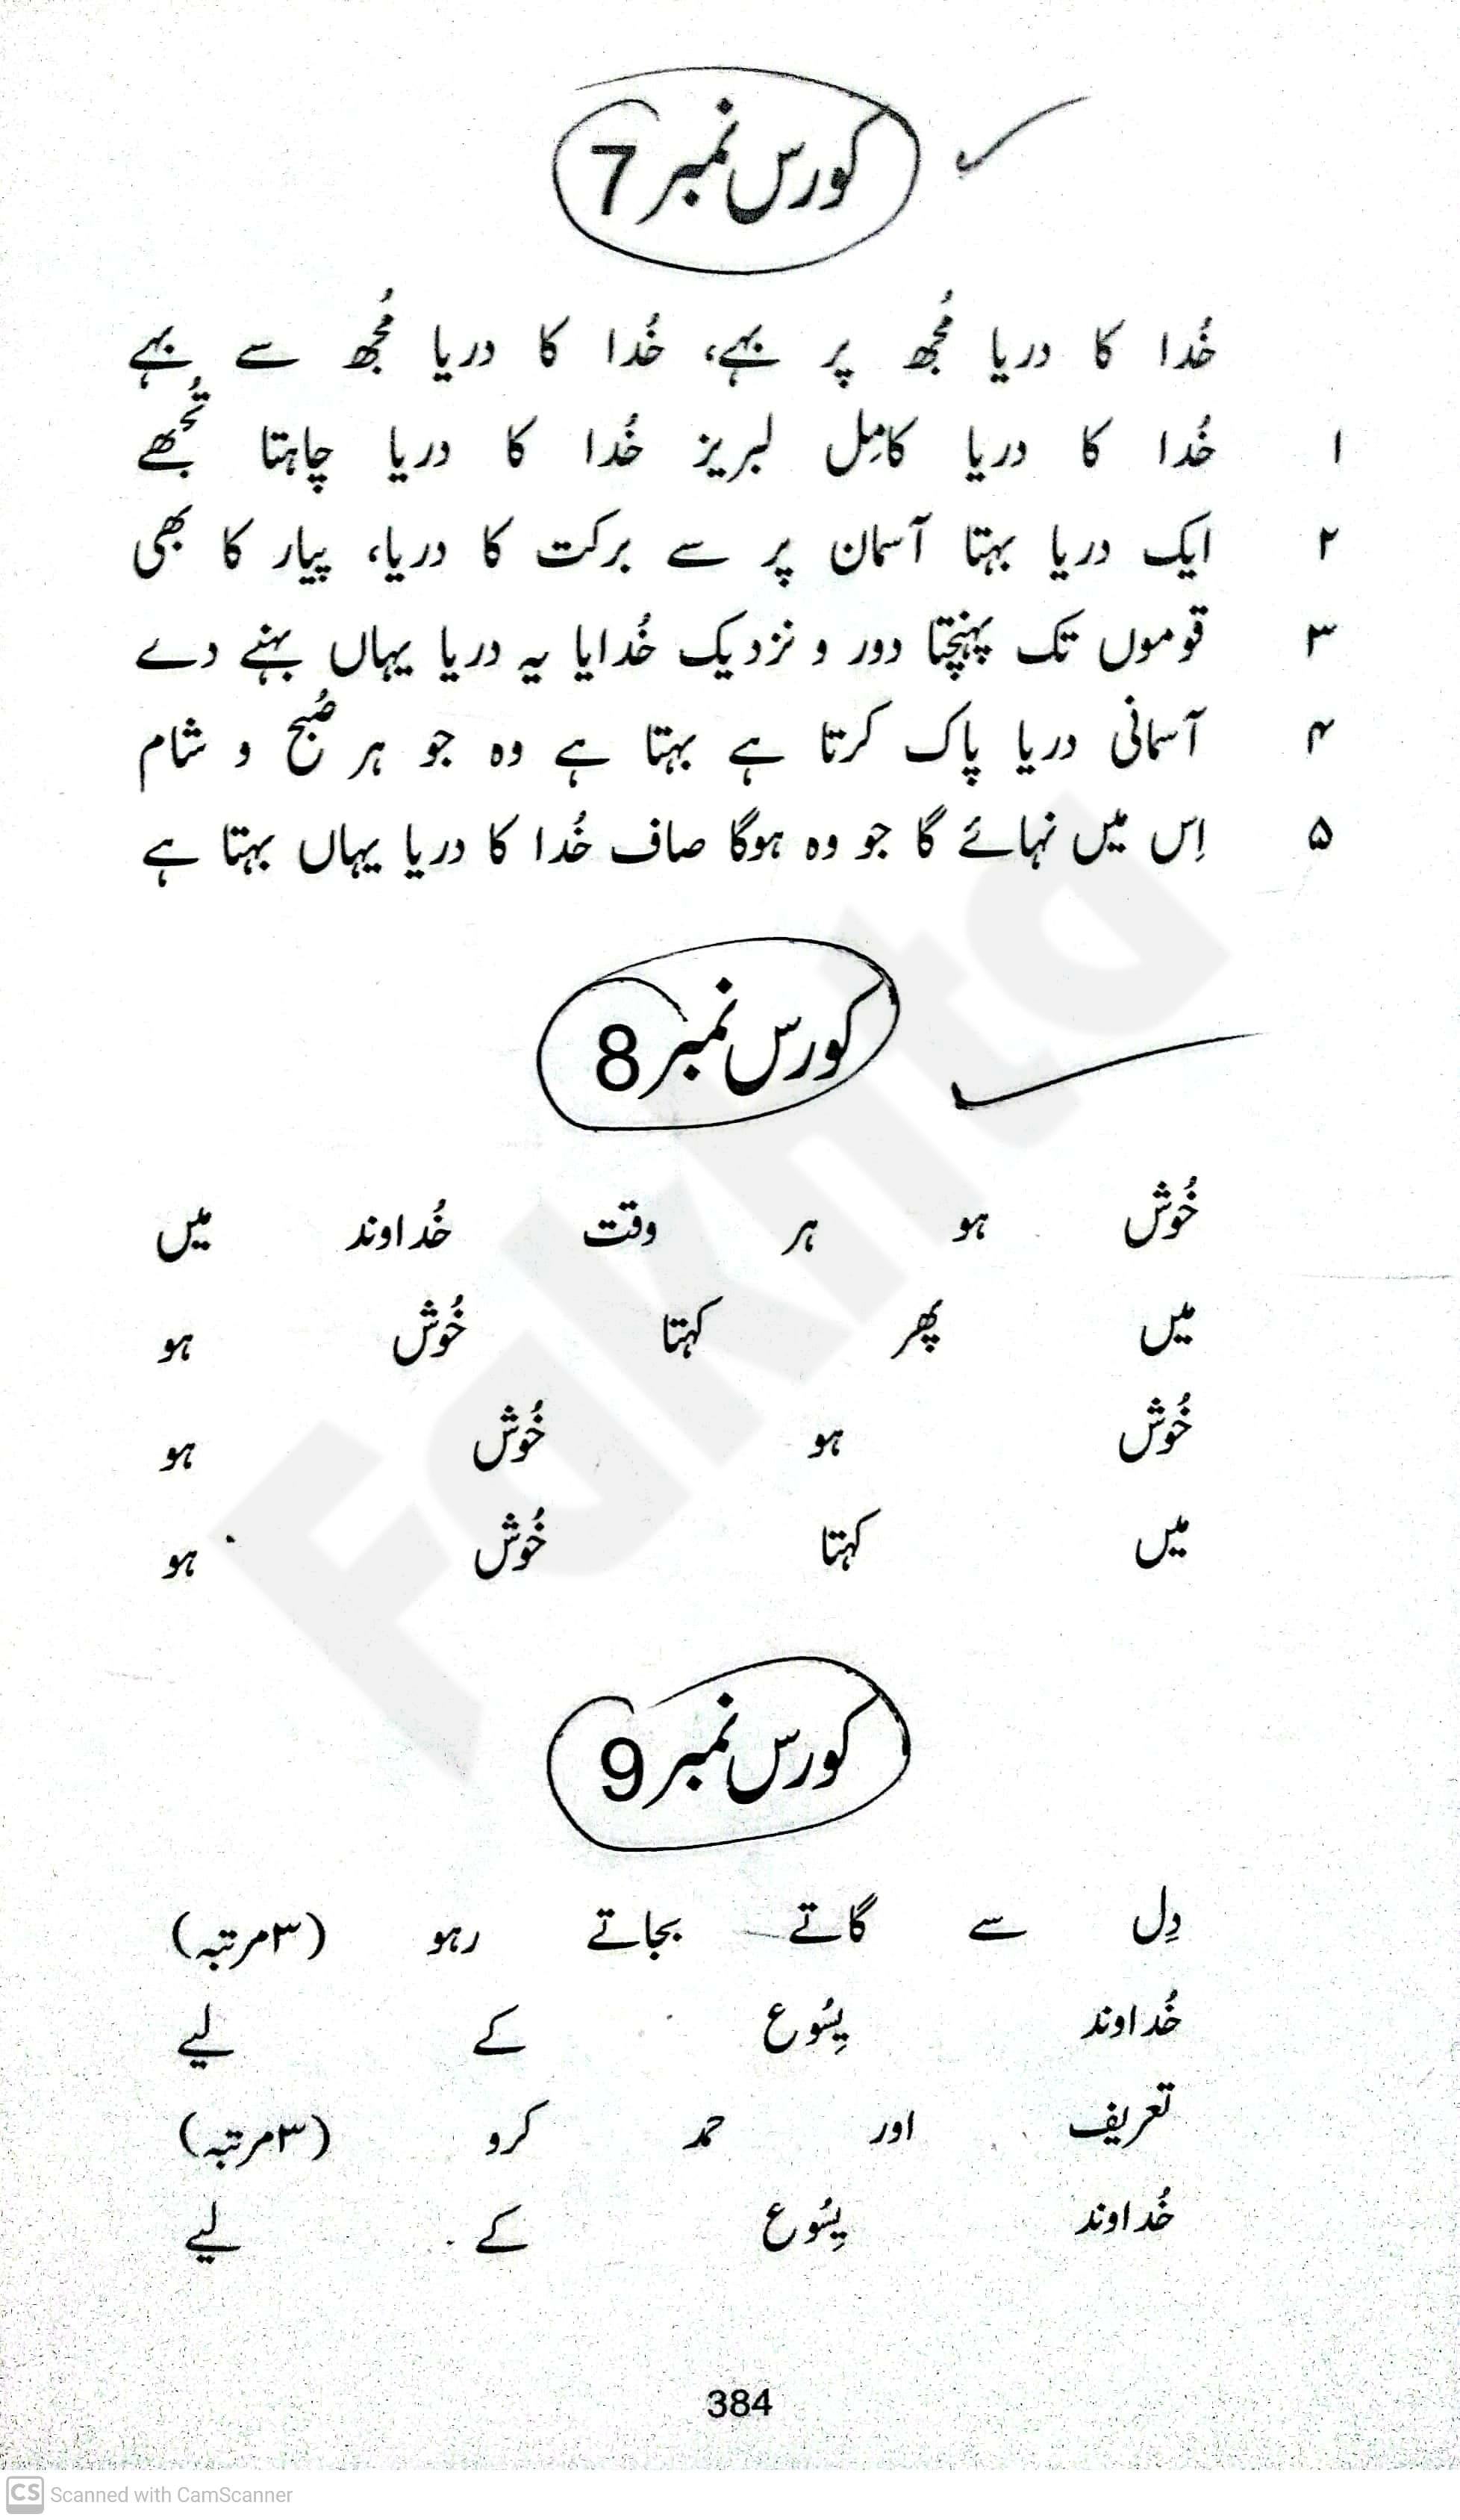 کورس نمبر 7
خُدا کا دریا مُجھ پر بہے، خُدا کا دریا مُجھ سے بہے
۱ خُدا کا دریا کامِل لبریز خُدا کا دریا چاہتا تُجھے
۲ ایک دریا بہتا آسمان پر سے برکت کا دریا، پیار کا بھی
۳ قوموں تک پہنچتا دور و نزدیک خُدایا یہ دریا یہاں بہنے دے
۴ آسمانی دریا پاک کرتا ہے بہتا ہے وہ جو ہر صُبح و شام
۵ اِس میں نہائے گا جو وہ ہوگا صاف خُدا کا دریا یہاں بہتا ہے
کورس نمبر 8
خُوش ہو ہر وقت خُداوند میں
میں پھر کہتا خُوش ہو
خُوش ہو خُوش ہو
میں کہتا خُوش ہو
کورس نمبر 9
دِل سے گاتے بجاتے رہو (۳مرتبہ)
خُداوند یِسُوع کے لیے
تعریف اور حمد کرو (۳مرتبہ)
خُداوند یِسُوع کے لیے
384
Fakhta
CS Scanned with CamScanner